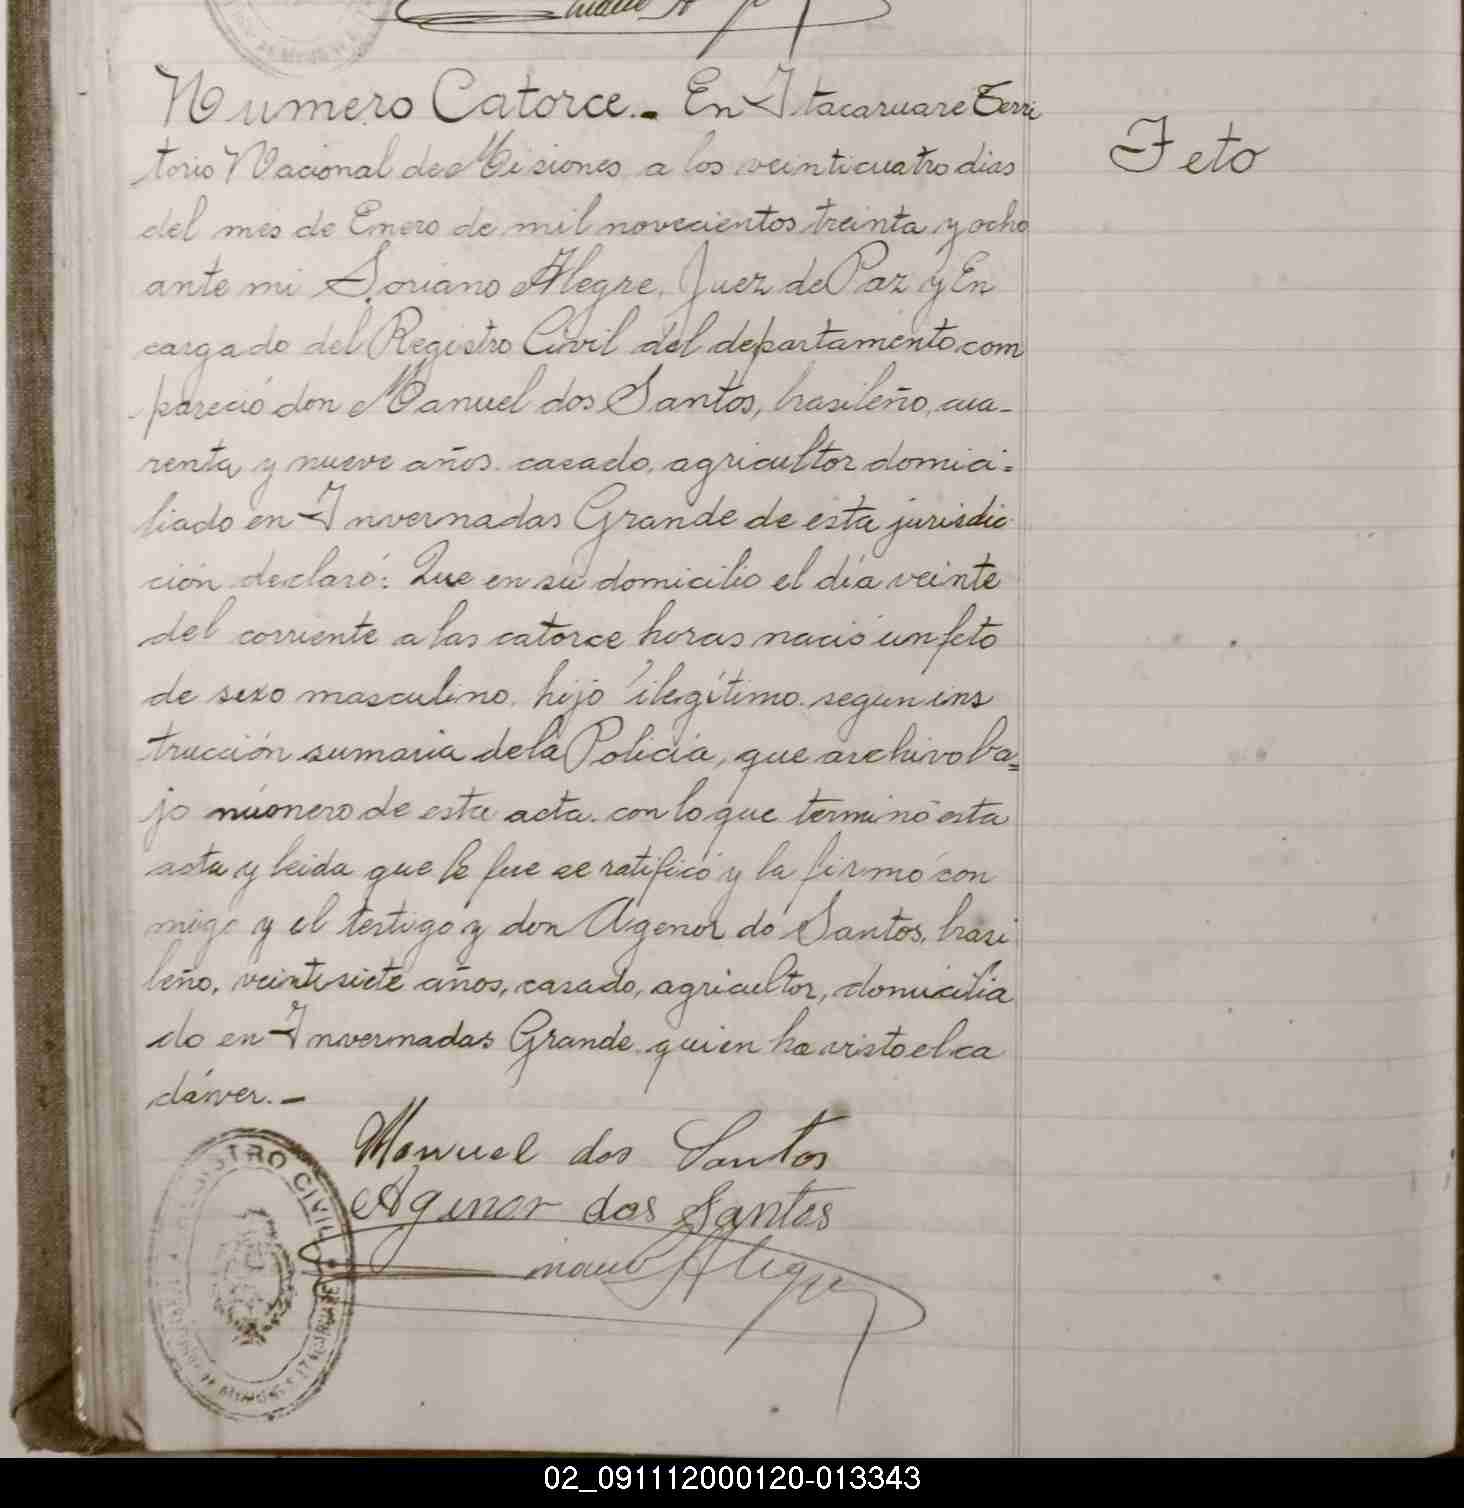 Numero Catorce.- En Itacaruare Terri
torio Nacional de Misiones a los veinticuatro dias
del mes de Enero de mil novecientos treinta y ocho
ante mi Soriano Alegre, Juez de Paz y En
cargado del Registro Civil del departamento com
pareció don Manuel dos Santos, brasileño, cua-
renta y nueve años. casado, agricultor domici=
liado en Invernadas Grande de esta jurisdic
ción declaró: Que en su domicilio el día veinte
del corriente a las catorce horas nació un feto
de sexo masculino, hijo ilegítimo. segun ins
trucción sumaria de la Policia, que archivo ba=
jo número de esta acta. con lo que terminó esta
acta y leida que le fue se ratificó y la firmó con
migo y el testigo y don Agenor do Santos, brasi
leño, veintisiete años, casado, agricultor, domicilia
do en Invernadas Grande quien ha visto el ca
dáver.-
Feto
Manuel dos Santos
Agenor dos Santos
Alegre
REGISTRO CIVIL
02_091112000120-013343